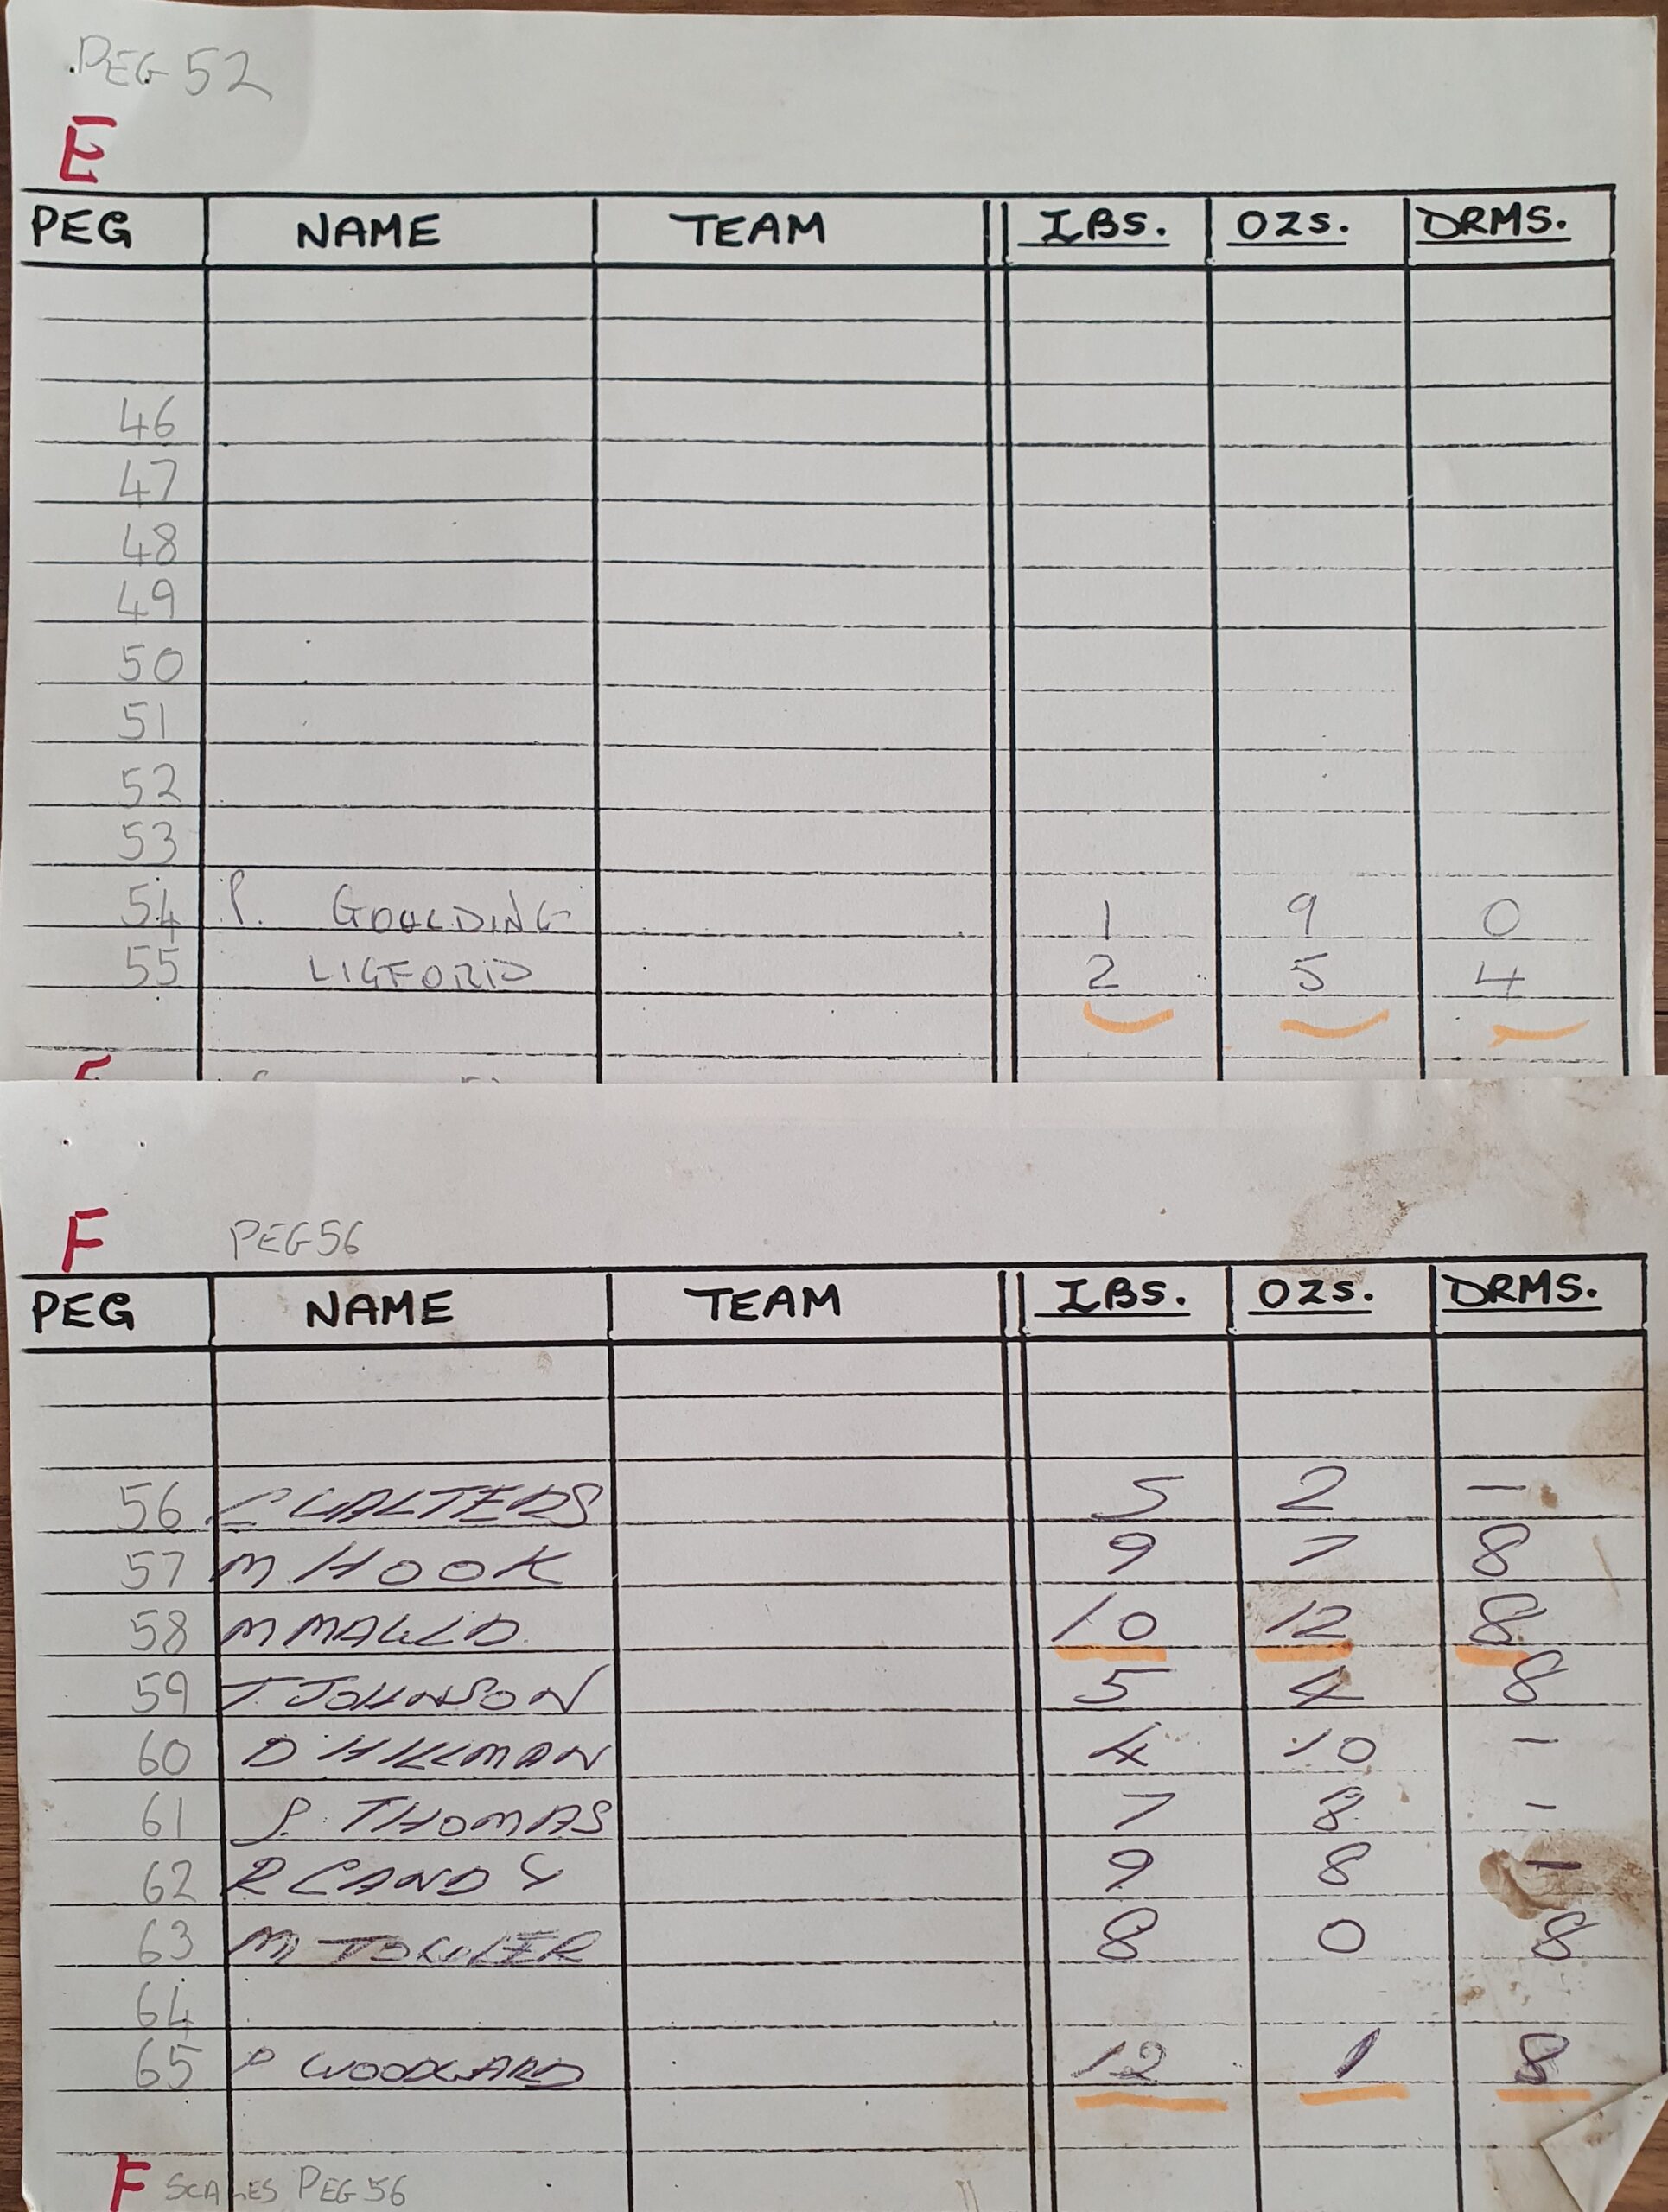 PEG 52
E
PEG NAME TEAM IBS. OZS. DRMS.
46
47
48
49
50
51
52
53
54 P. GOULDING 1 9 0
55 2 5 4
F PEG 56
PEG NAME TEAM IBS. OZS. DRMS.
56 C WALTERS 5 2 —
57 M HOOK 9 7 8
58 M 10 12 8
59 T JOHNSON 5 4 8
60 D HILLMAN 4 10 -
61 THOMAS 7 8 -
62 R CANDY 9 8 -
63 M TOWLER 8 0 8
64
65 P WOODWARD 12 1 8
F SCALES PEG 56